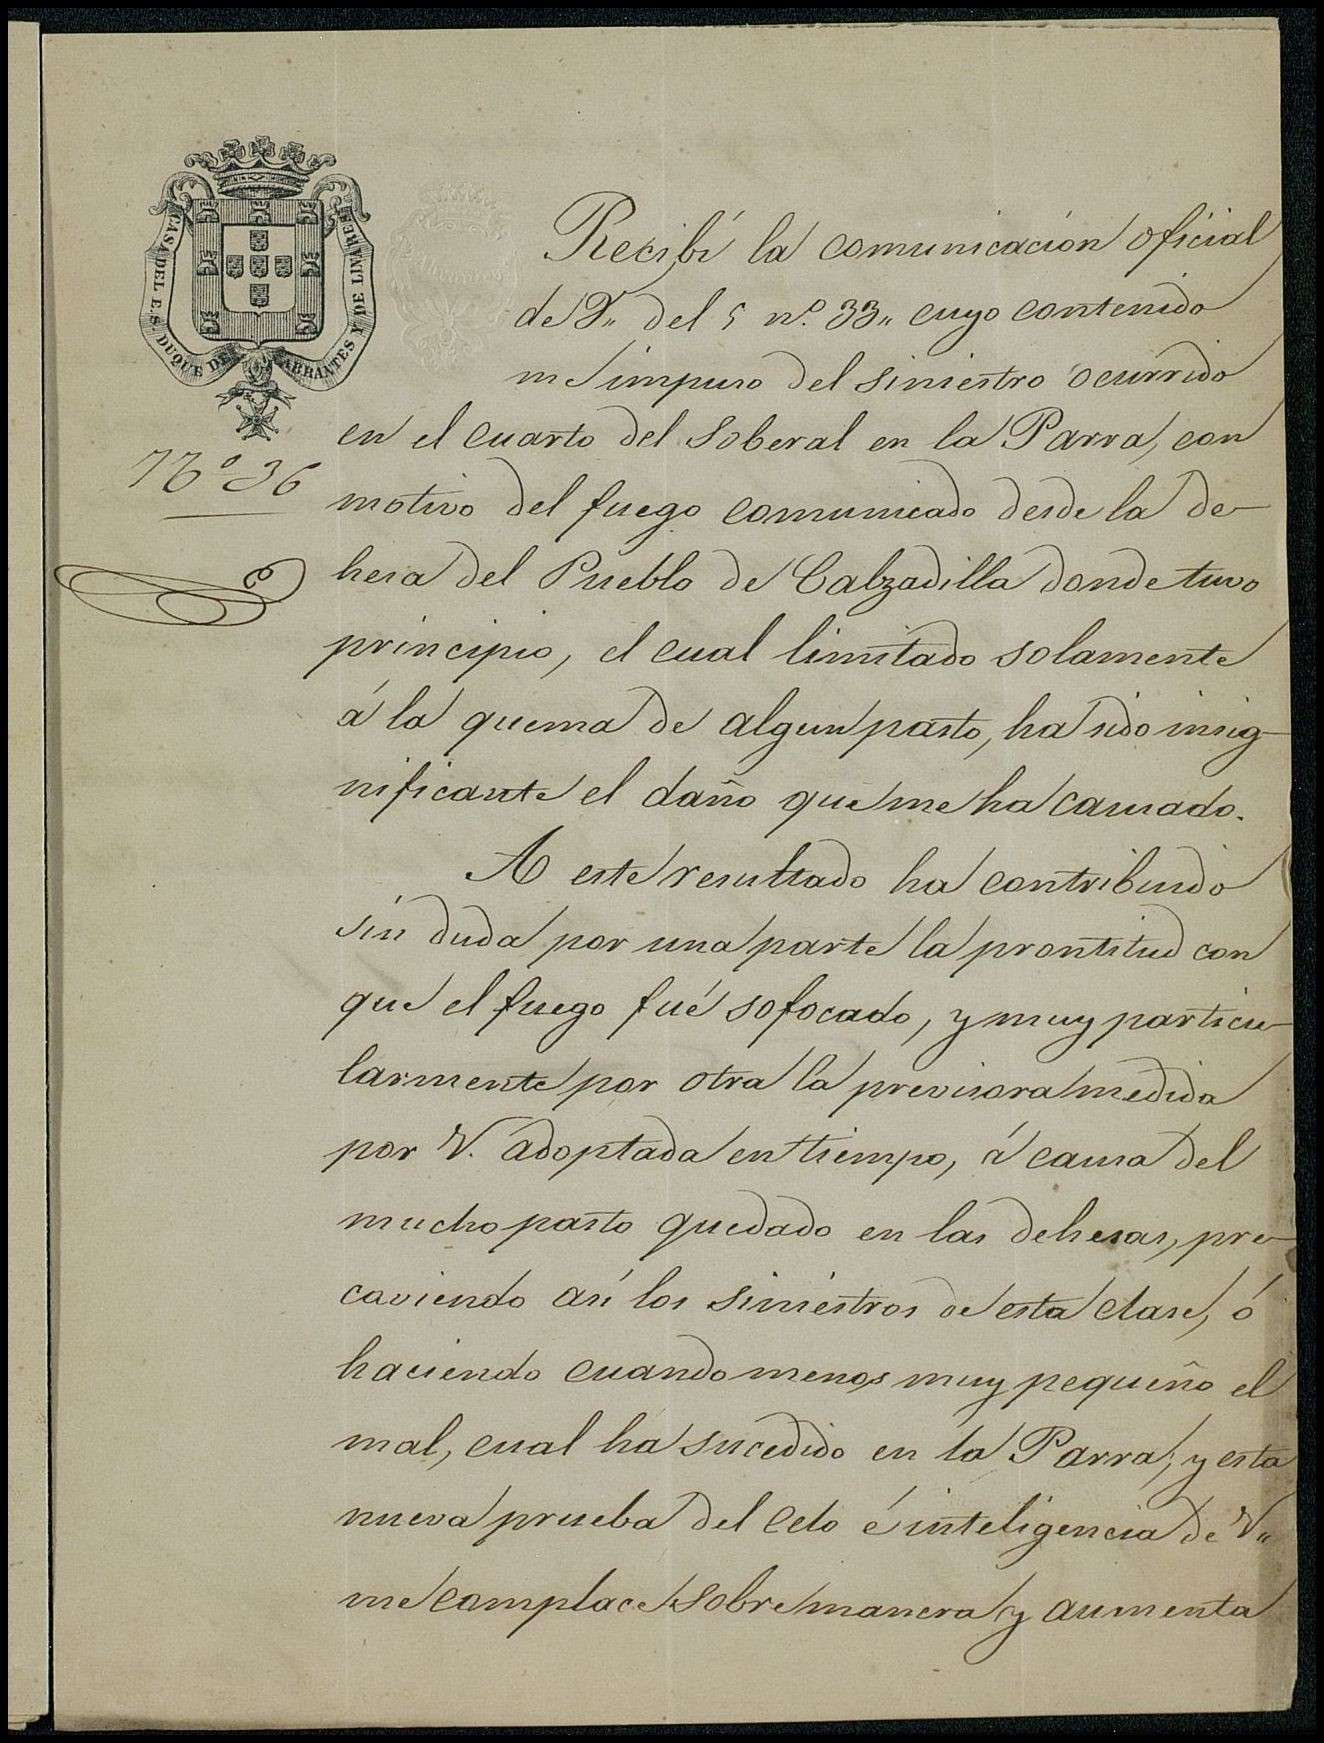 CASA DEL E. S. DUQUE DE ABRANTES Y DE LINARES
Recibí la comunicación oficial
de V. del 5 nº. 33,, cuyo contenido
me impuso del siniestro ocurrido
en el cuarto del Soberal en la Parra, con
Nº 36
motivo del fuego comunicado desde la de-
hesa del Pueblo de Calzadilla donde tuvo
principio, el cual limitado solamente
á la quema de algun pasto, ha sido insig-
nificante el daño que me ha causado.
A este resultado ha contribuido
sin duda por una parte la prontitud con
que el fuego fué sofocado, y muy particu-
larmente por otra la previsora medida
por V. adoptada en tiempo, á causa del
mucho pasto quedado en las dehesas, pre-
caviendo asi los siniestros de esta clase, ó
haciendo cuando menos muy pequeño el
mal, cual ha sucedido en la Parra; y esta
nueva prueba del celo é inteligencia de V,,
me complace sobremanera y aumenta